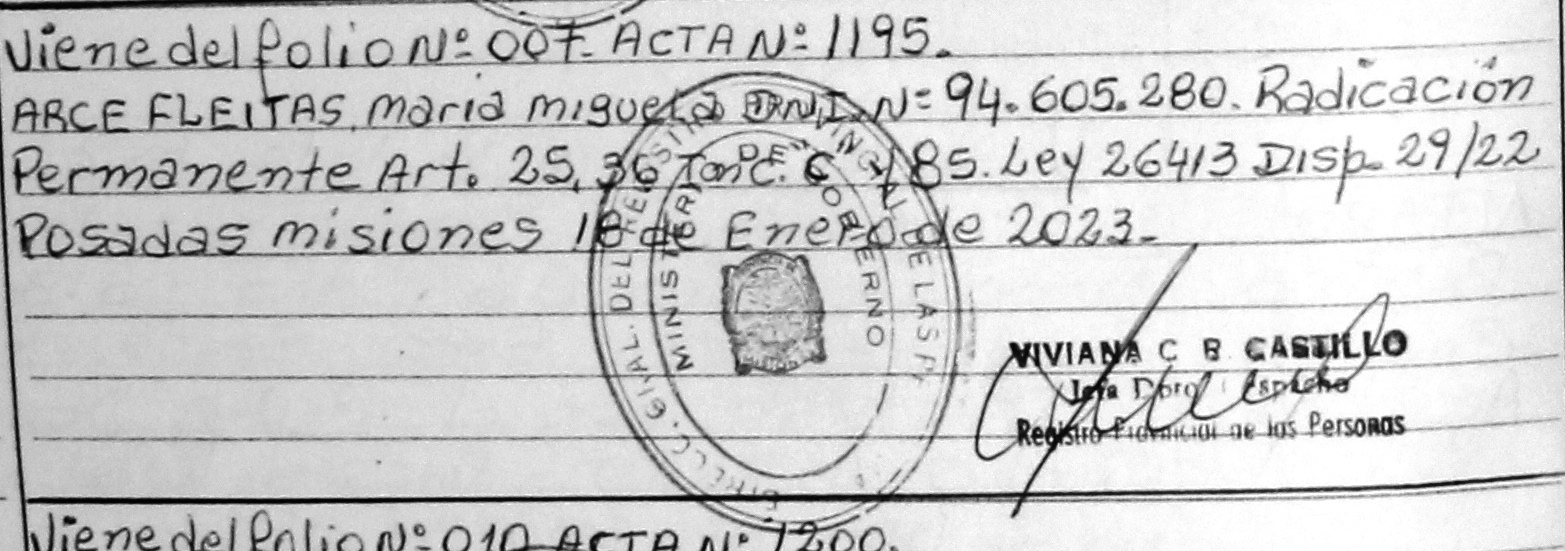 Viene del folio Nº 007. ACTA Nº 1195.
ARCE FLEITAS, Maria Miguela D.N.I. Nº 94.605.280. Radicación
Permanente Art. 25, 36 inc. C y 85. Ley 26413 Disp. 29/22
Posadas misiones 18 de Enero de 2023.
DIRECC. GRAL. DEL REGISTRO PROVINCIAL DE LAS P
MINISTERIO DE GOBERNO
VIVIANA C B CASTILLO
Jefa Dpto Despacho
Registro Provincial de las Personas
Viene del folio Nº 010 ACTA Nº 1200.